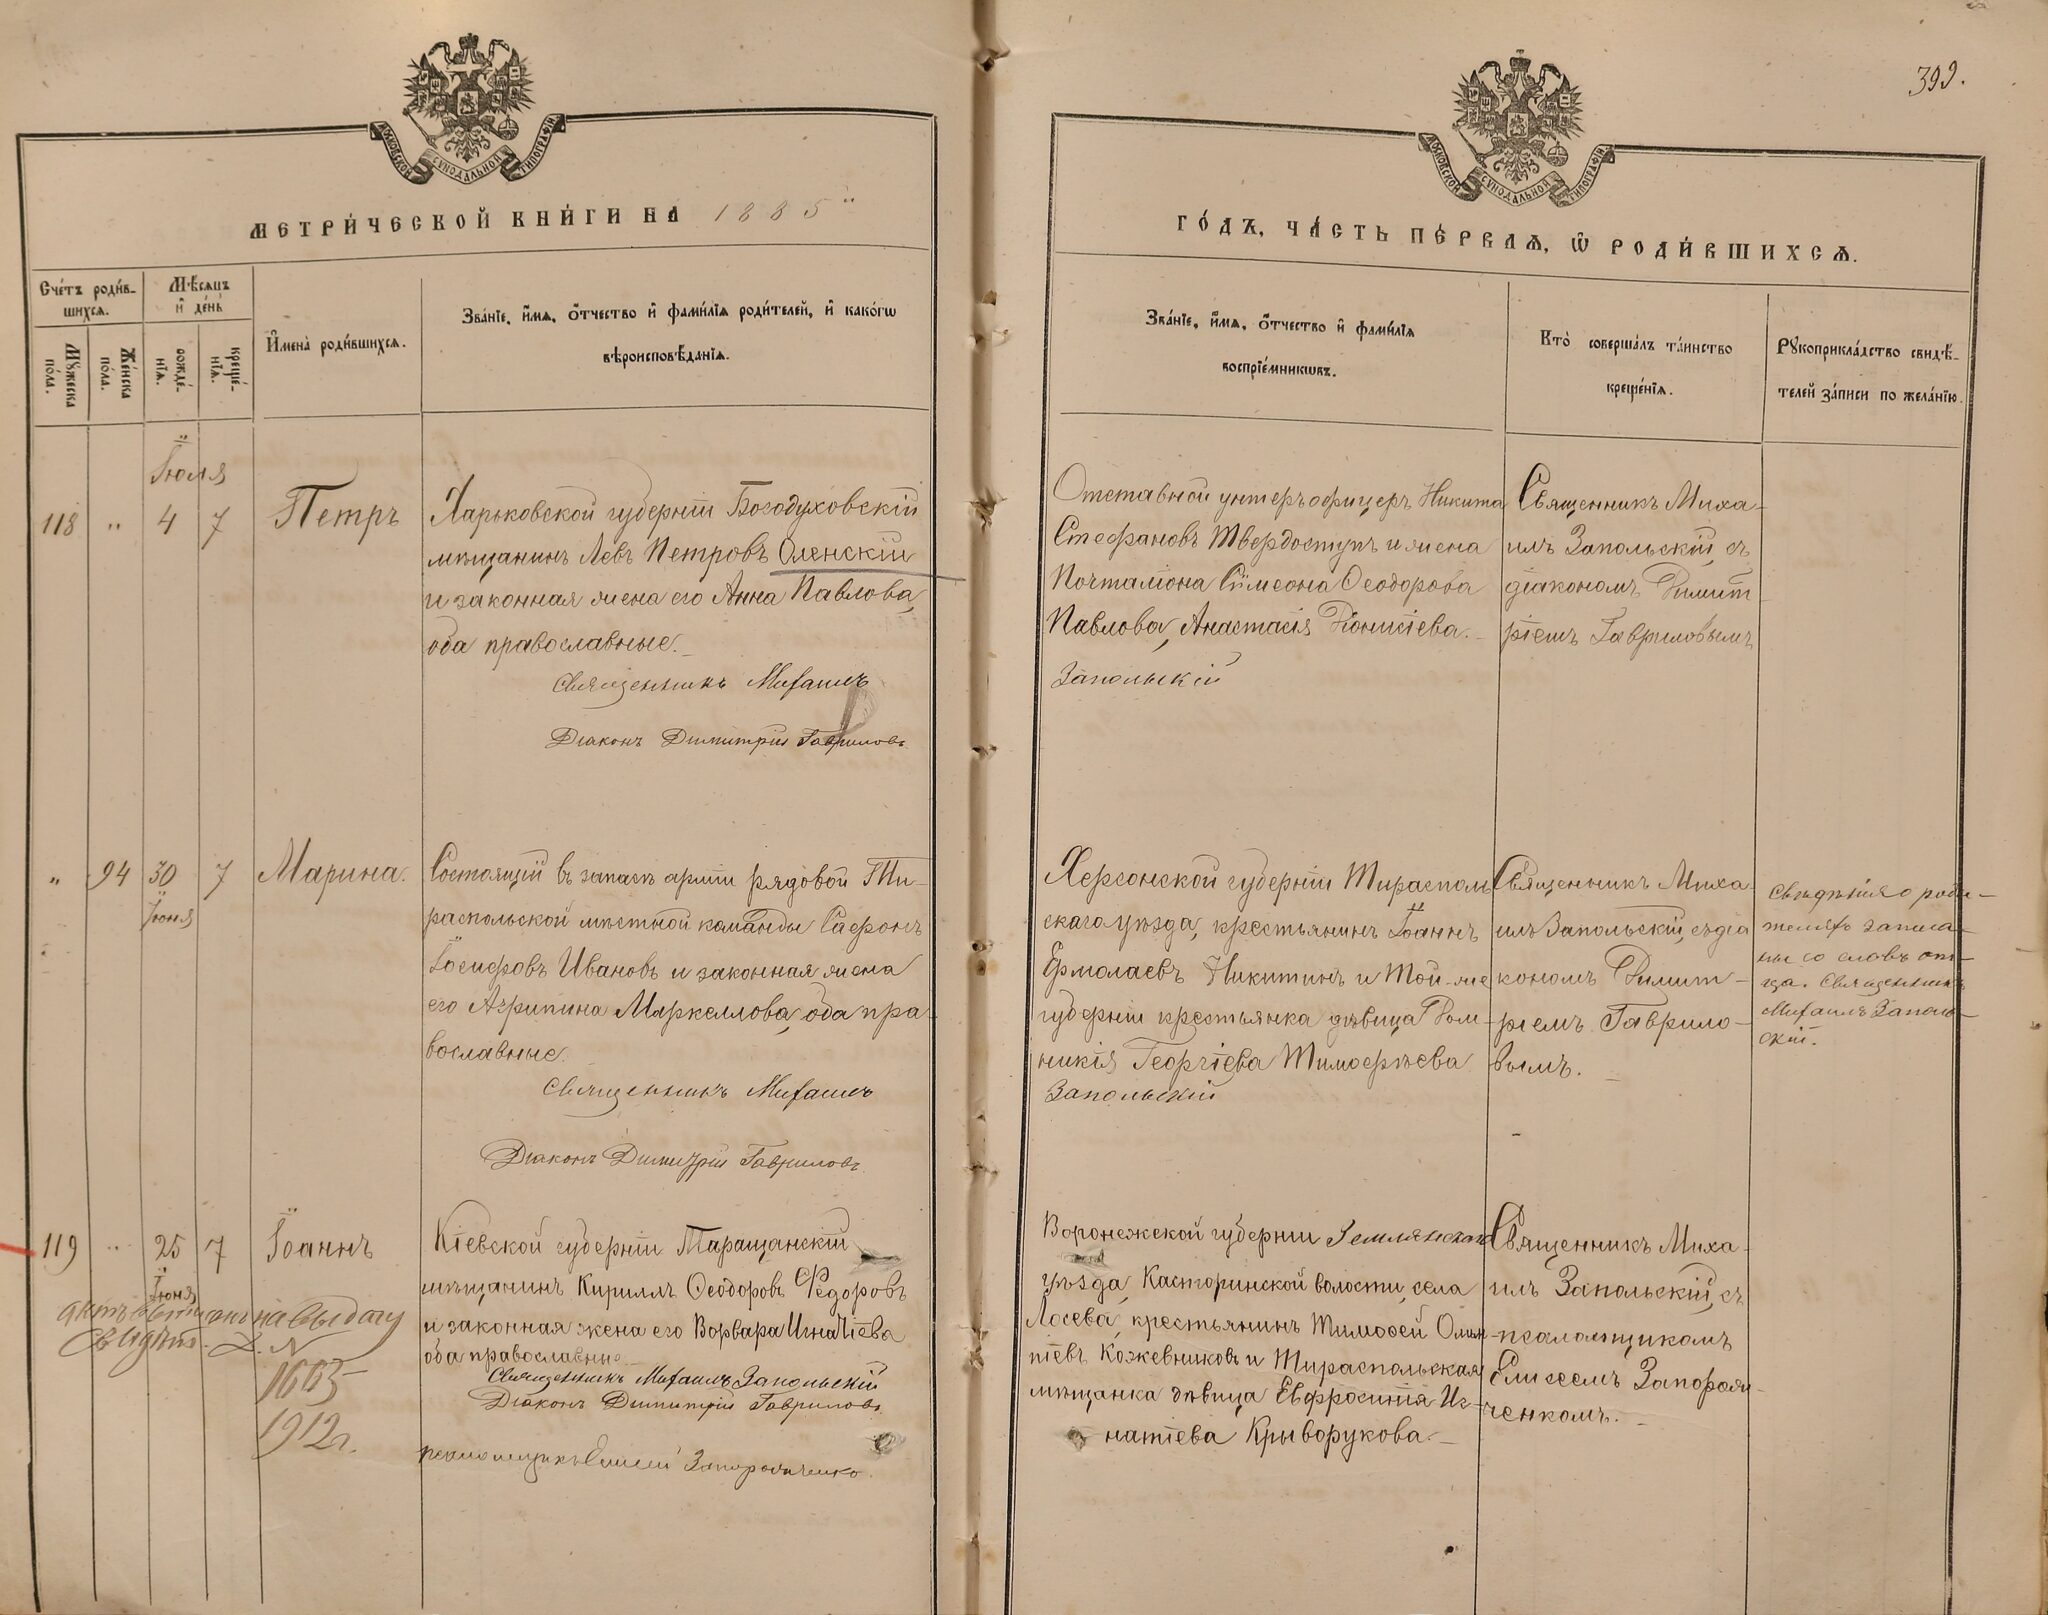 399.
МОСКОВСКОЙ СѴНОДАЛЬНОЙ ТИПОГРАФІИ
МОСКОВСКОЙ СѴНОДАЛЬНОЙ ТИПОГРАФІИ
МЕТРИ́ЧЕСКОЙ КНИ́ГИ НА 1885
ГО́ДЪ, ЧА́СТЬ ПЕ́РВАѦ, Ѡ҆ РОДИ́ВШИХСѦ.
Сче́тъ роди́в-
шихсѧ.
Мꙋжеска
по́ла.
Же́нска
по́ла.
Мѣ́сѧцъ
и҆ де́нь
рожде́-
нїѧ.
креще́-
нїѧ.
И҆мена̀ роди́вшихсѧ.
Зва́нїе, и҆́мѧ, ѻ҆́тчество и҆ фами́лїѧ роди́телей, и҆ како́гѡ
вѣроисповѣ́данїѧ.
Зва́нїе, и҆́мѧ, ѻ҆́тчество и҆ фами́лїѧ
воспрїе́мникѡвъ.
Кто̀ соверша́лъ та́инство
креще́нїѧ.
Рꙋкоприкла́дство свидѣ́-
телей за́писи по жела́нїю.
Іюля
118 " 4 7 Петръ
Харьковской губерніи Богодуховскій
мѣщанинъ Левъ Петровъ Оленскій
и законная жена его Анна Павлова,
оба православные.
Священникъ Михаилъ
Діаконъ Димитрій Гавриловъ
Отставной унтеръ офицеръ Никита
Стефановъ Твердоступъ и жена
Почталіона Сѵмеона Ѳеодорова
Павлова, Анастасія Діонисіева.
Запольскій
Священникъ Миха-
илъ Запольскій, съ
діакономъ Димит-
ріемъ Гавриловымъ
" 94 30 7 Марина.
Іюня
Состоящій въ запасѣ арміи рядовой Ти-
распольской мѣстной команды Сафронъ
Іосифовъ Ивановъ и законная жена
его Агрипина Маркеллова, оба пра-
вославные.
Священникъ Михаилъ
Діаконъ Димитрій Гавриловъ.
Херсонской губерніи Тирасполь
скаго уѣзда, крестьянинъ Іоаннъ
Ермолаевъ Никитинъ и той-же
губерніи крестьянка дѣвица Дом-
никія Георгіева Тимофѣева
Запольскій
Священникъ Миха-
илъ Запольскій, съ діа
кономъ Димит-
ріемъ Гаврило-
вымъ.
Свѣдѣнія о роди-
теляхъ записа-
ны со словъ от-
ца. Священникъ
Михаилъ Заполь-
скій.
119 " 25 7 Іоаннъ
Іюня
свидѣт. Д. N
1665
1912 г.
Кіевской губерніи Таращанскій
мѣщанинъ Кириллъ Ѳеодоровъ Федоровъ
и законная жена его Ворвара Игнатіева
оба православные
Священникъ Михаилъ Запольскій
Діаконъ Димитрій Гавриловъ
псаломщикъ Елисей Запорожченко.
Воронежской губерніи Землянскаго
уѣзда, Касторинской волости, села
Лосева, крестьянинъ Тимоѳей Олим-
піевъ Кожевниковъ и Тираспольская
мѣщанка дѣвица Евфросинія Иг-
натіева Крыворукова.
Священникъ Миха-
илъ Запольскій, съ
псаломщикомъ
Елисеемъ Запорож-
ченкомъ.